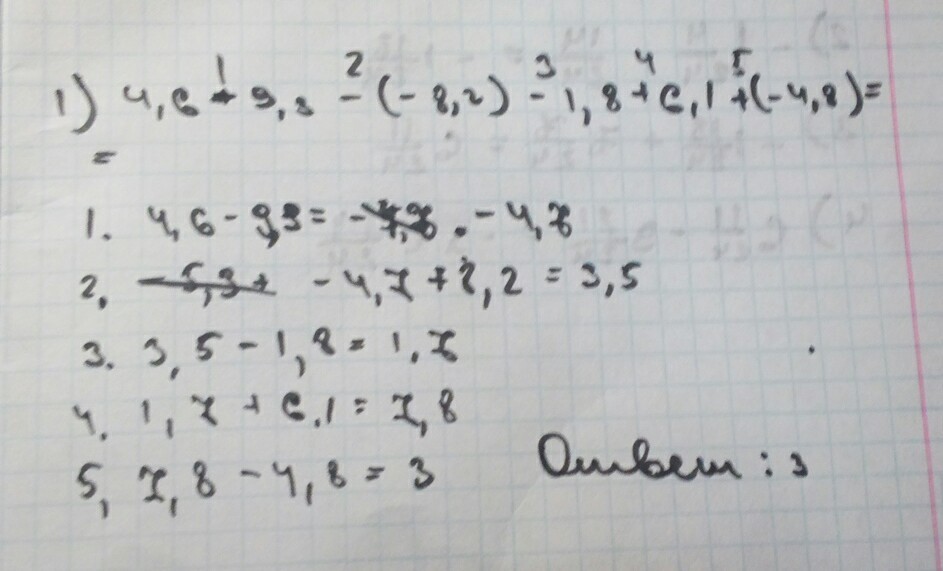 1 2 3 4 5
1) 4,6 - 9,3 - (-8,2) - 1,8 + 6,1 + (-4,8) =
=
1. 4,6 - 9,3 = - 4,7
2. - 4,7 + 8,2 = 3,5
3. 3,5 - 1,8 = 1,7
4. 1,7 + 6,1 = 7,8
5, 7,8 - 4,8 = 3 Ответ : 3